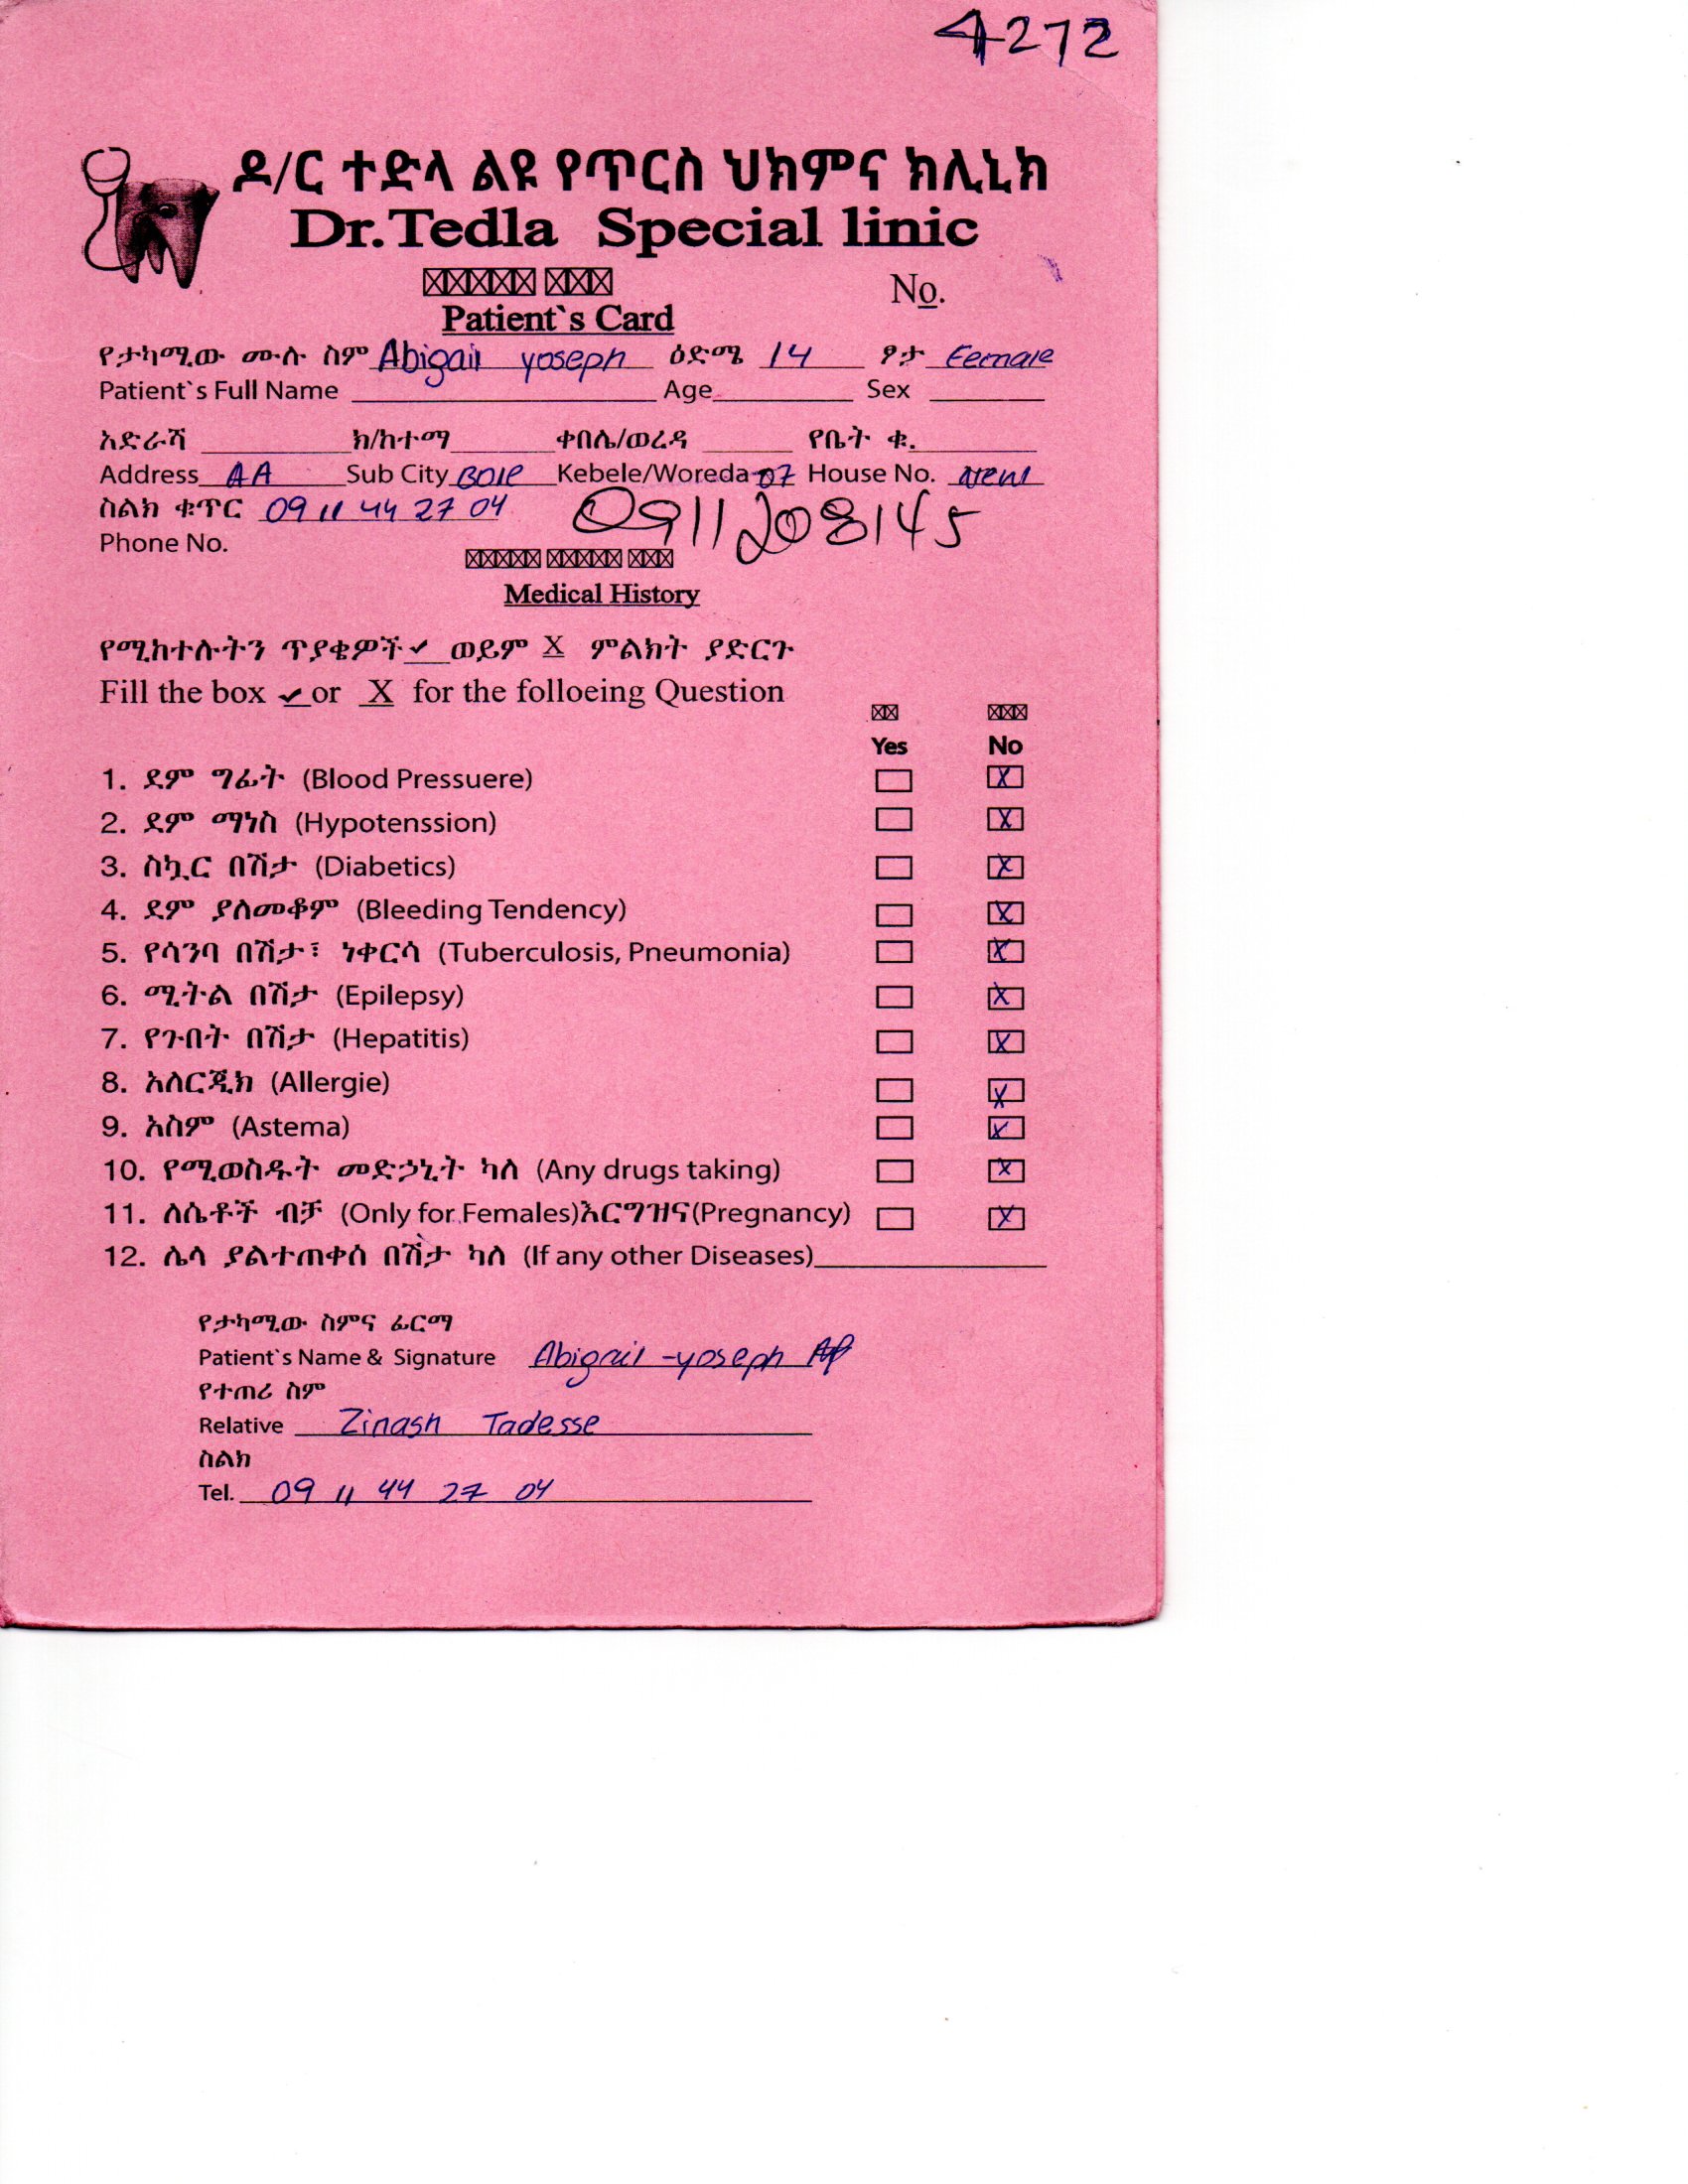 4272
ዶ/ር ተድላ ልዩ የጥርስ ህክምና ክሊኒክ
Dr.Tedla Special linic
No.
Patient`s Card
የታካሚው ሙሉ ስም Abigail yoseph ዕድሜ 14 ፆታ Female
Patient`s Full Name Age Sex
አድራሻ ክ/ከተማ ቀበሌ/ወረዳ የቤት ቁ.
Address AA Sub City Bole Kebele/Woreda 07 House No. New
ስልክ ቁጥር 09 11 44 27 04 0911208145
Phone No.
Medical History
የሚከተሉትን ጥያቄዎች ✓ ወይም X ምልክት ያድርጉ
Fill the box ✓ or X for the folloeing Question
Yes No
1. ደም ግፊት (Blood Pressuere) X
2. ደም ማነስ (Hypotenssion) X
3. ስኳር በሽታ (Diabetics) X
4. ደም ያለመቆም (Bleeding Tendency) X
5. የሳንባ በሽታ፣ ነቀርሳ (Tuberculosis, Pneumonia) X
6. ሚትል በሽታ (Epilepsy) X
7. የጉበት በሽታ (Hepatitis) X
8. አለርጂክ (Allergie) X
9. አስም (Astema) X
10. የሚወስዱት መድኃኒት ካለ (Any drugs taking) X
11. ለሴቶች ብቻ (Only for Females)እርግዝና(Pregnancy) X
12. ሌላ ያልተጠቀሰ በሽታ ካለ (If any other Diseases)
የታካሚው ስምና ፊርማ
Patient`s Name & Signature Abigail yoseph
የተጠሪ ስም
Relative Zinash Tadesse
ስልክ
Tel. 09 11 44 27 04